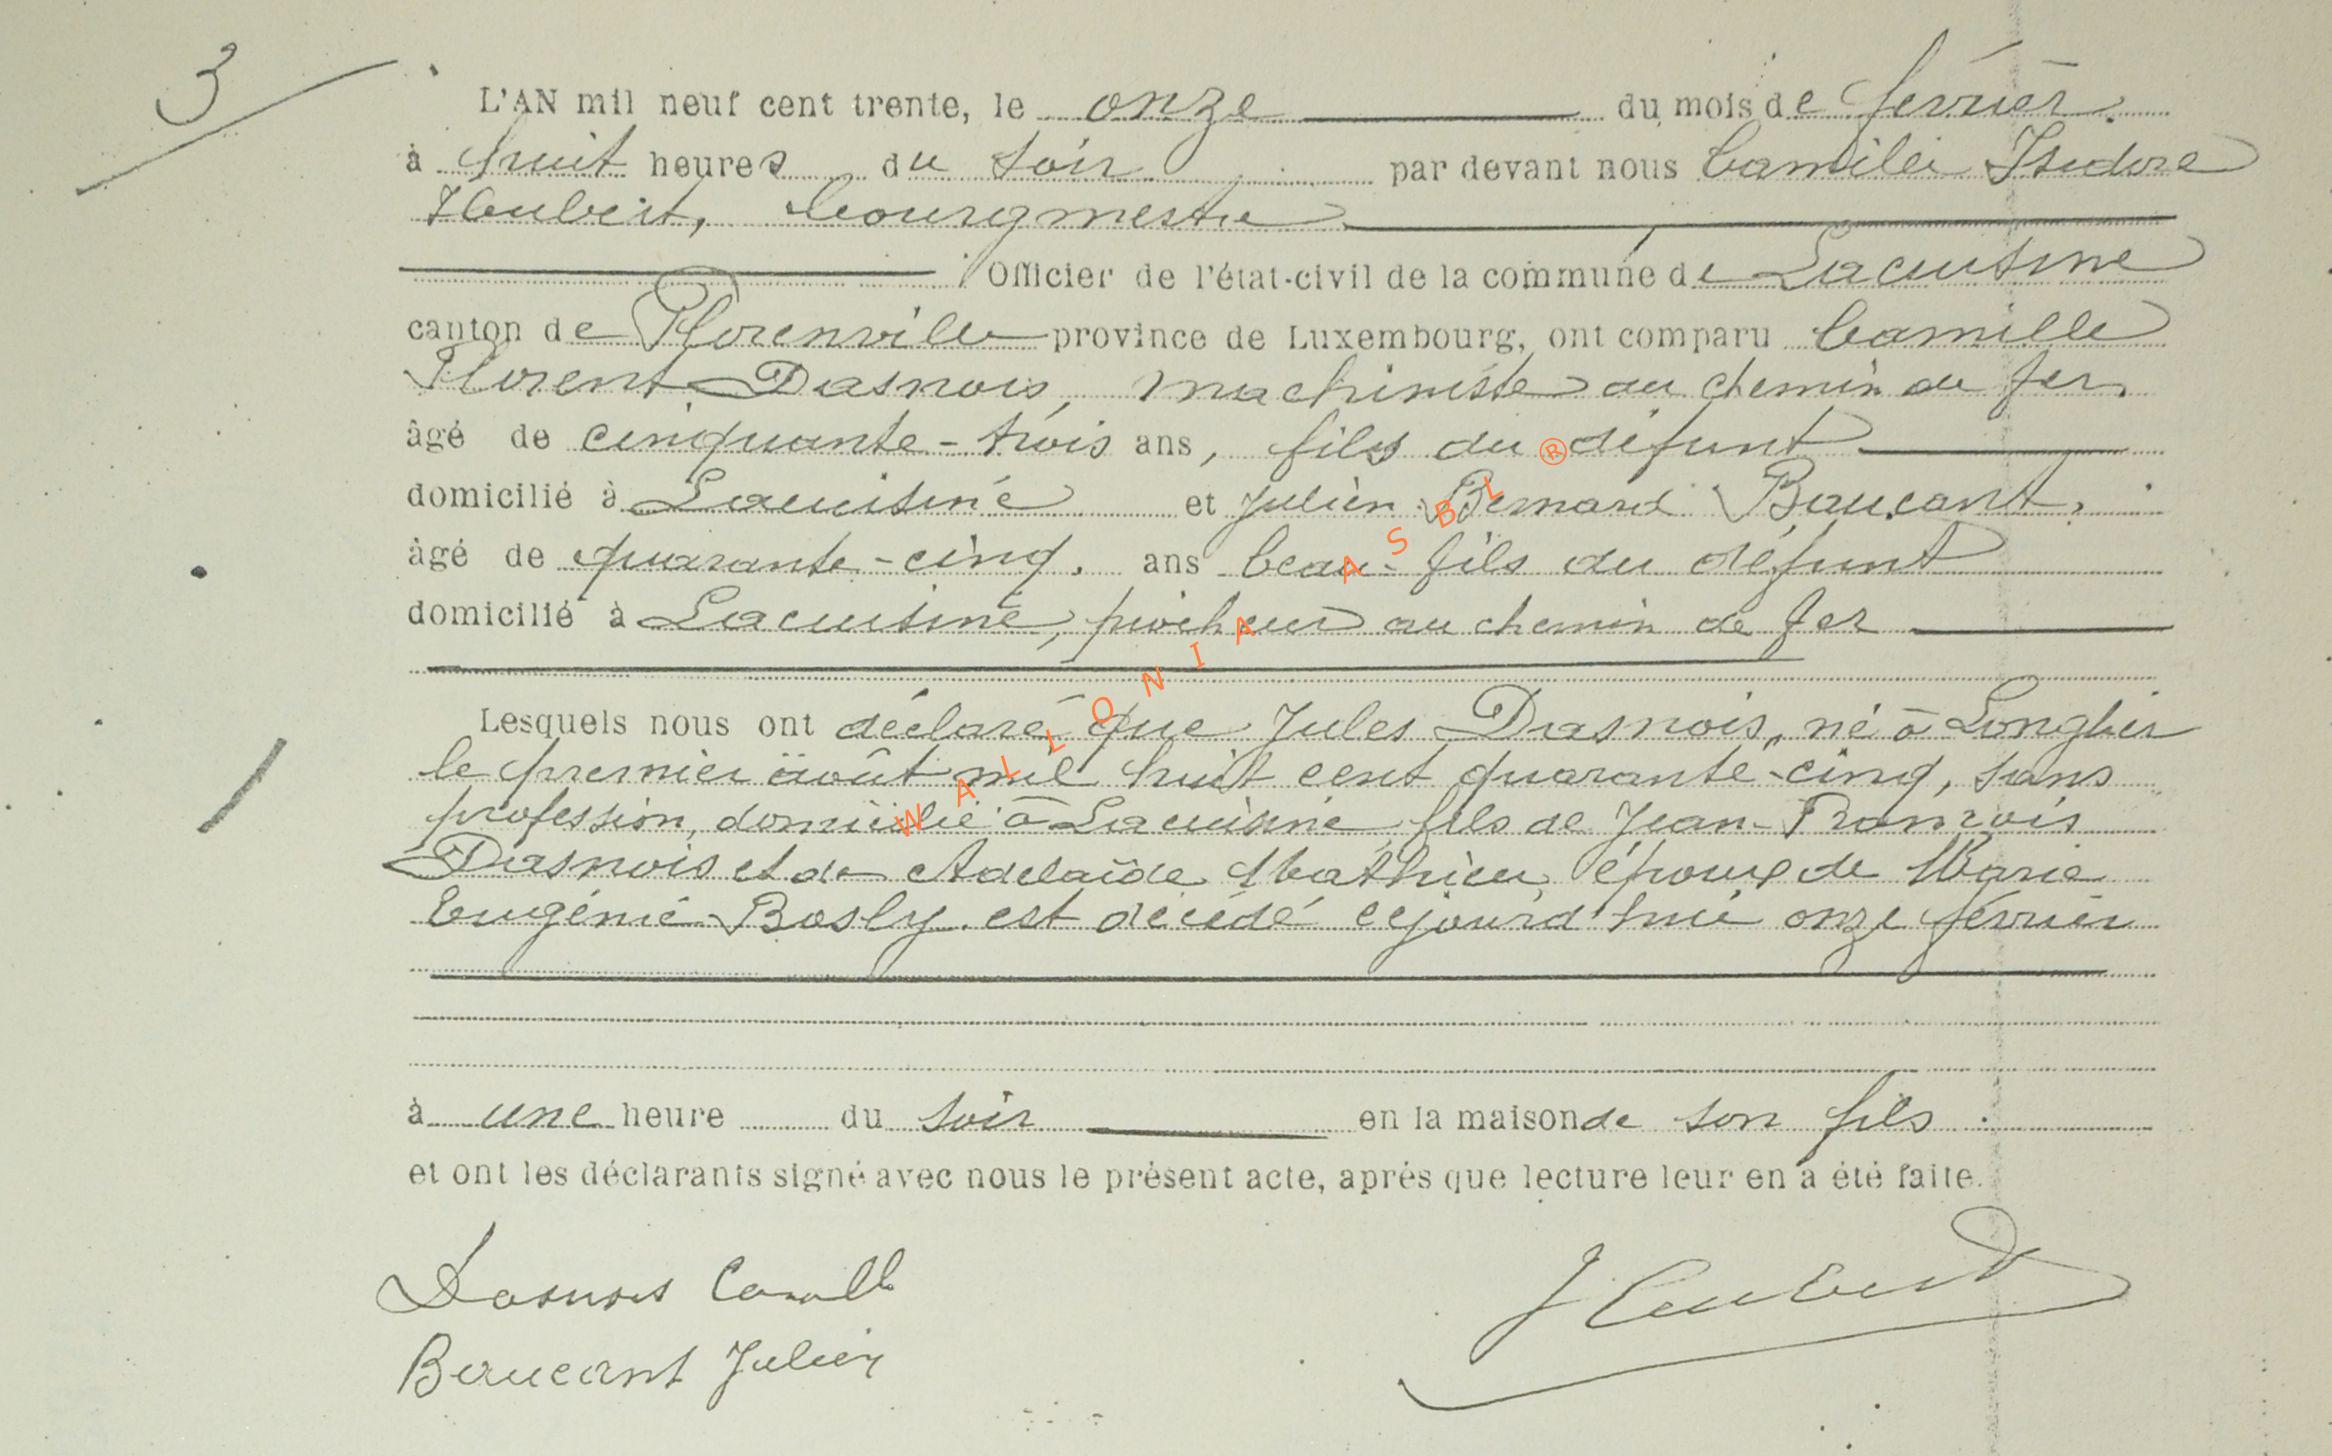 3
L'AN mil neuf cent trente, le onze du mois de février
à huit heures du soir par devant nous Camille Isidore
Heubert, bourgmestre
Officier de l'état-civil de la commune de Lacuisine
canton de Florenville province de Luxembourg, ont comparu Camille
Florent Dasnois, machiniste au chemin de fer,
âgé de cinquante-trois ans, fils du défunt
domicilié à Lacuisine et Julien Bernard Baucant,
âgé de quarante-cinq ans beau-fils du défunt
domicilié à Lacuisine, piocheur au chemin de fer
Lesquels nous ont déclaré que Jules Dasnois, né à Longlier
le premier août mil huit cent quarante-cinq, sans
profession, domicilié à Lacuisine, fils de Jean-François
Dasnois et de Adélaïde Mathieu, époux de Marie
Eugénie Bosly est décédé cejourd'hui onze février
à une heure du soir en la maison de son fils.
et ont les déclarants signé avec nous le présent acte, après que lecture leur en a été faite.
Dasnois Camille
Heubert
Baucant Julien
WALLONIA ASBL ®